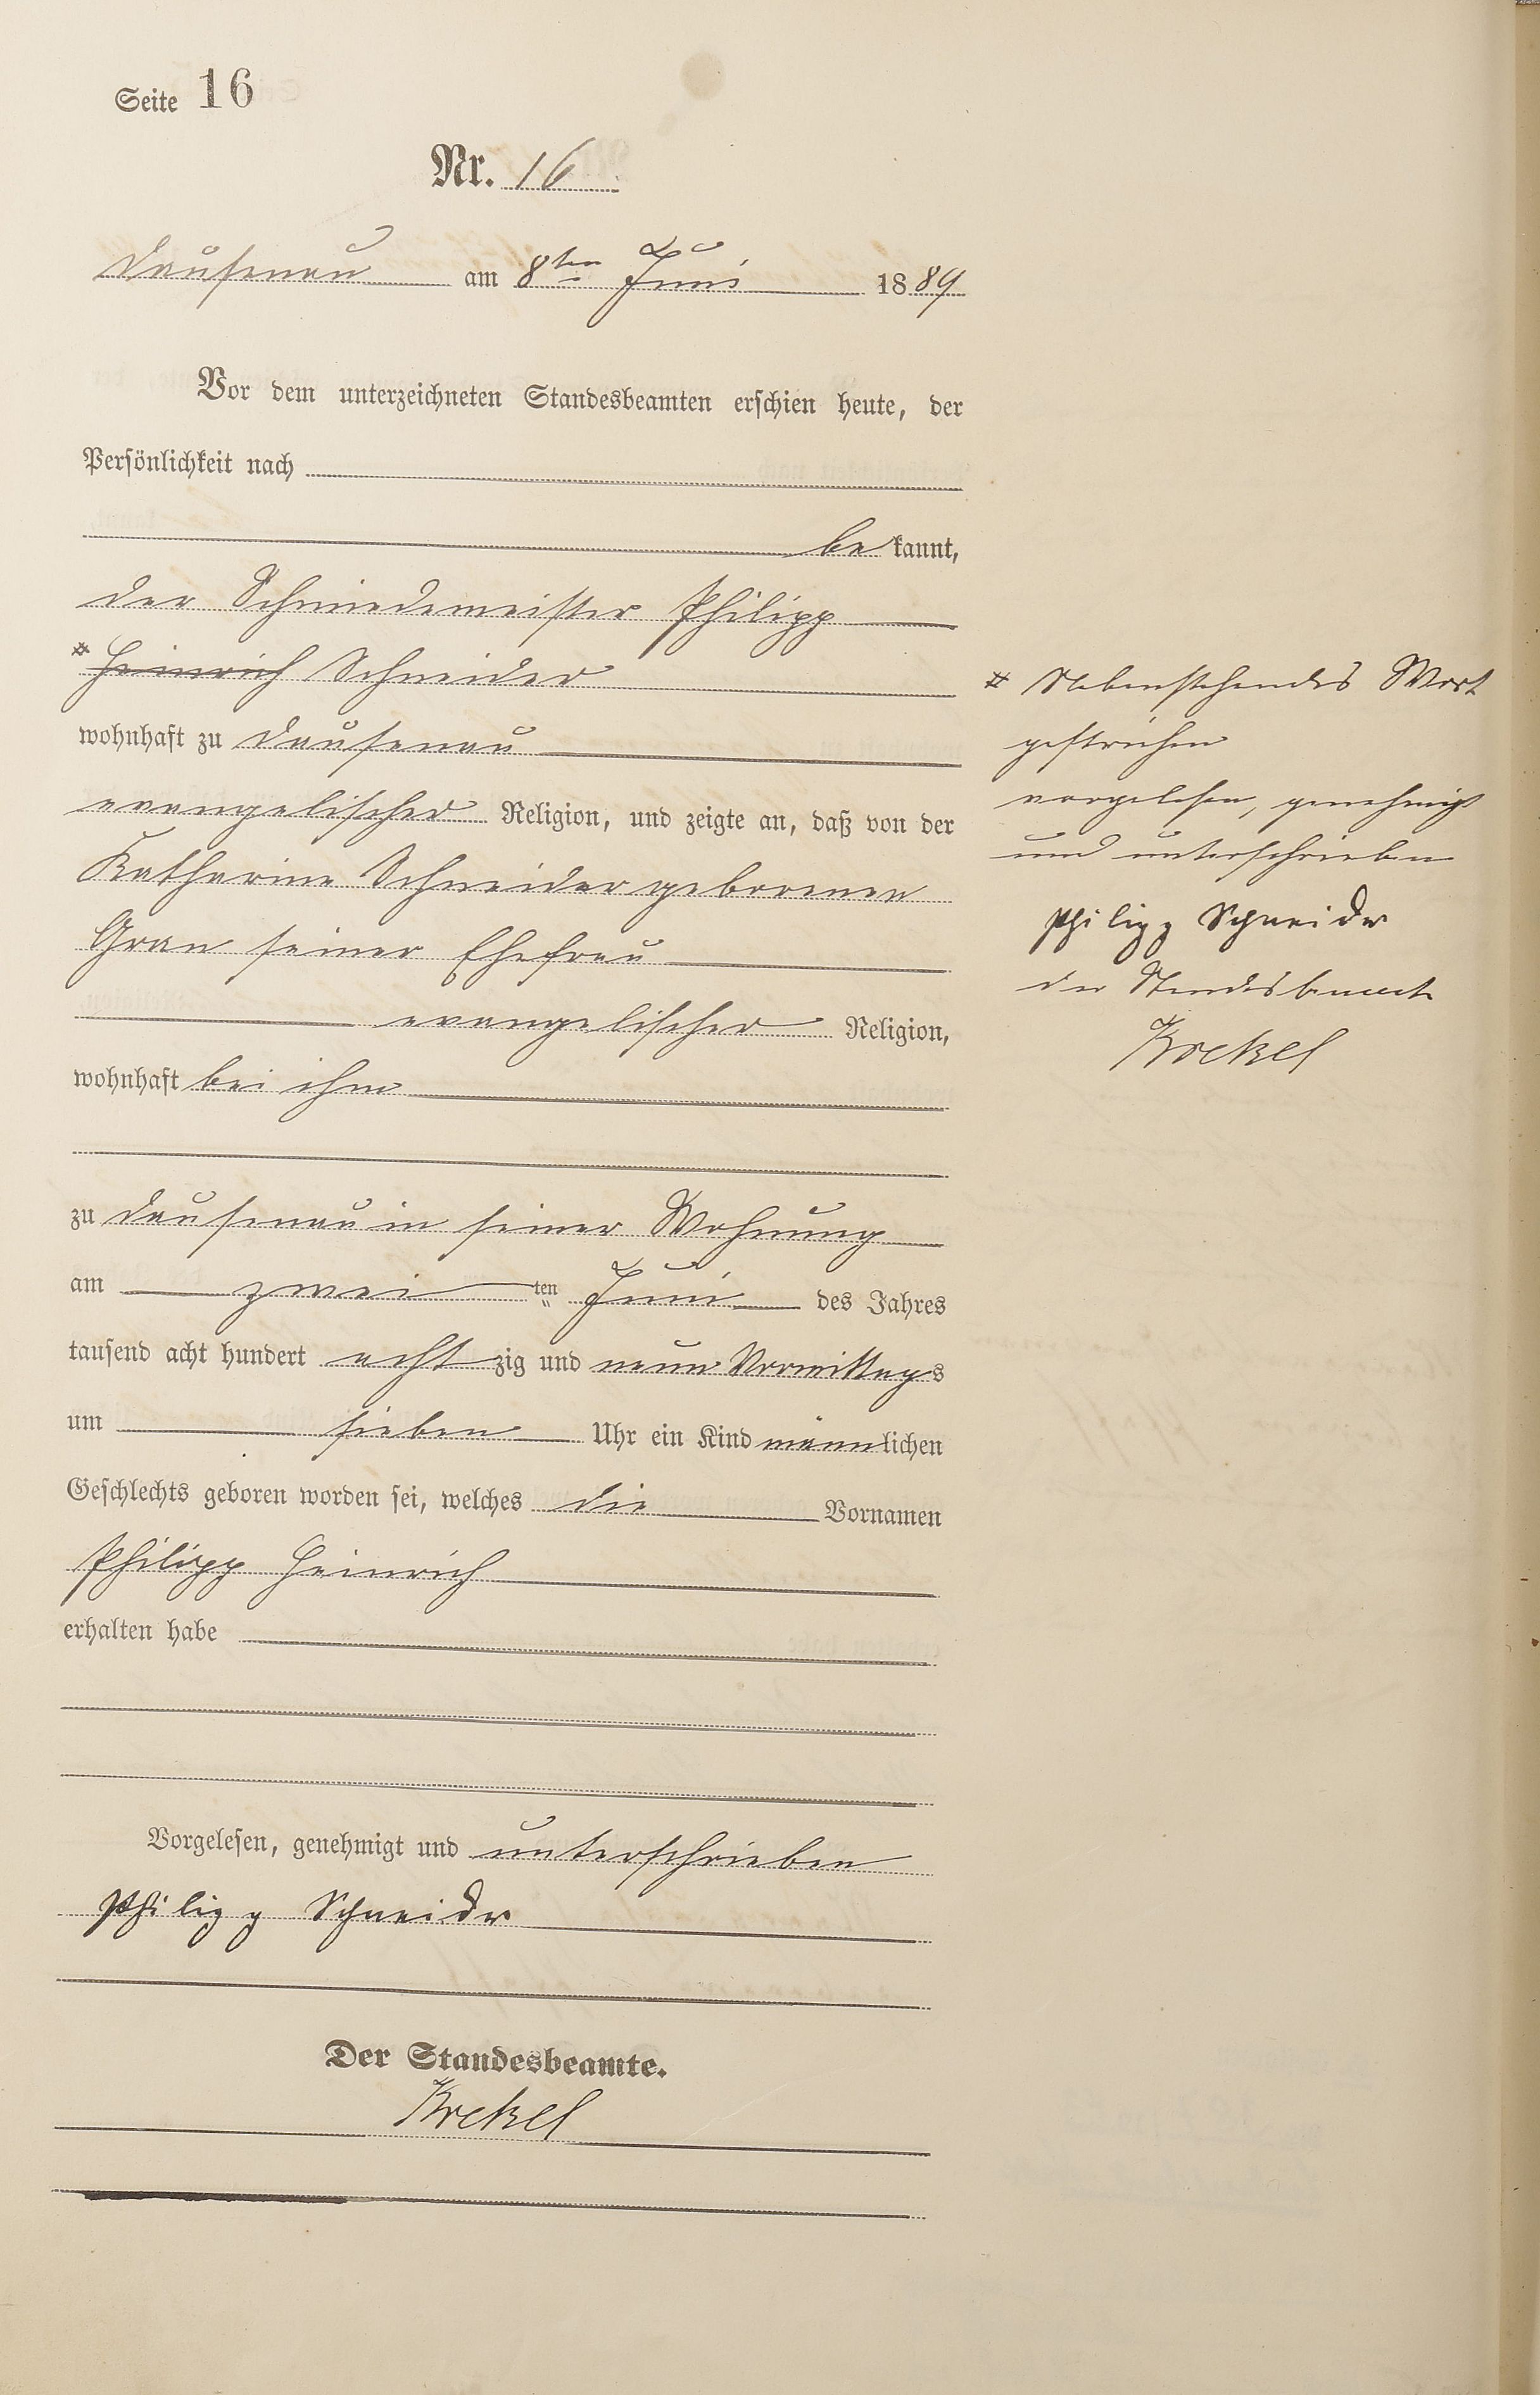 Seite 16
Nr. 16
Dausenau am 8ten Juni 1889
Vor dem unterzeichneten Standesbeamten erschien heute, der
Persönlichkeit nach
be kannt,
der Schmiedemeister Philipp
* Heinrich Schneider
wohnhaft zu Dausenau
evangelischer Religion, und zeigte an, daß von der
Katharina Schneider geborenen
seiner Ehefrau
evangelischer Religion,
wohnhaft bei ihm
zu Dausenau in seiner Wohnung
am zwei ten Juni des Jahres
tausend acht hundert acht zig und neun Vormittags
um sieben Uhr ein Kind männlichen
Geschlechts geboren worden sei, welches die Vornamen
Philipp Heinrich
erhalten habe
Vorgelesen, genehmigt und unterschrieben
Philipp Schneider
Der Standesbeamte.
Krekel
* Nebenstehendes Wort
gestrichen
vorgelesen, genehmigt
und unterschrieben
Philipp Schneider
der Standesbeamte
Krekel